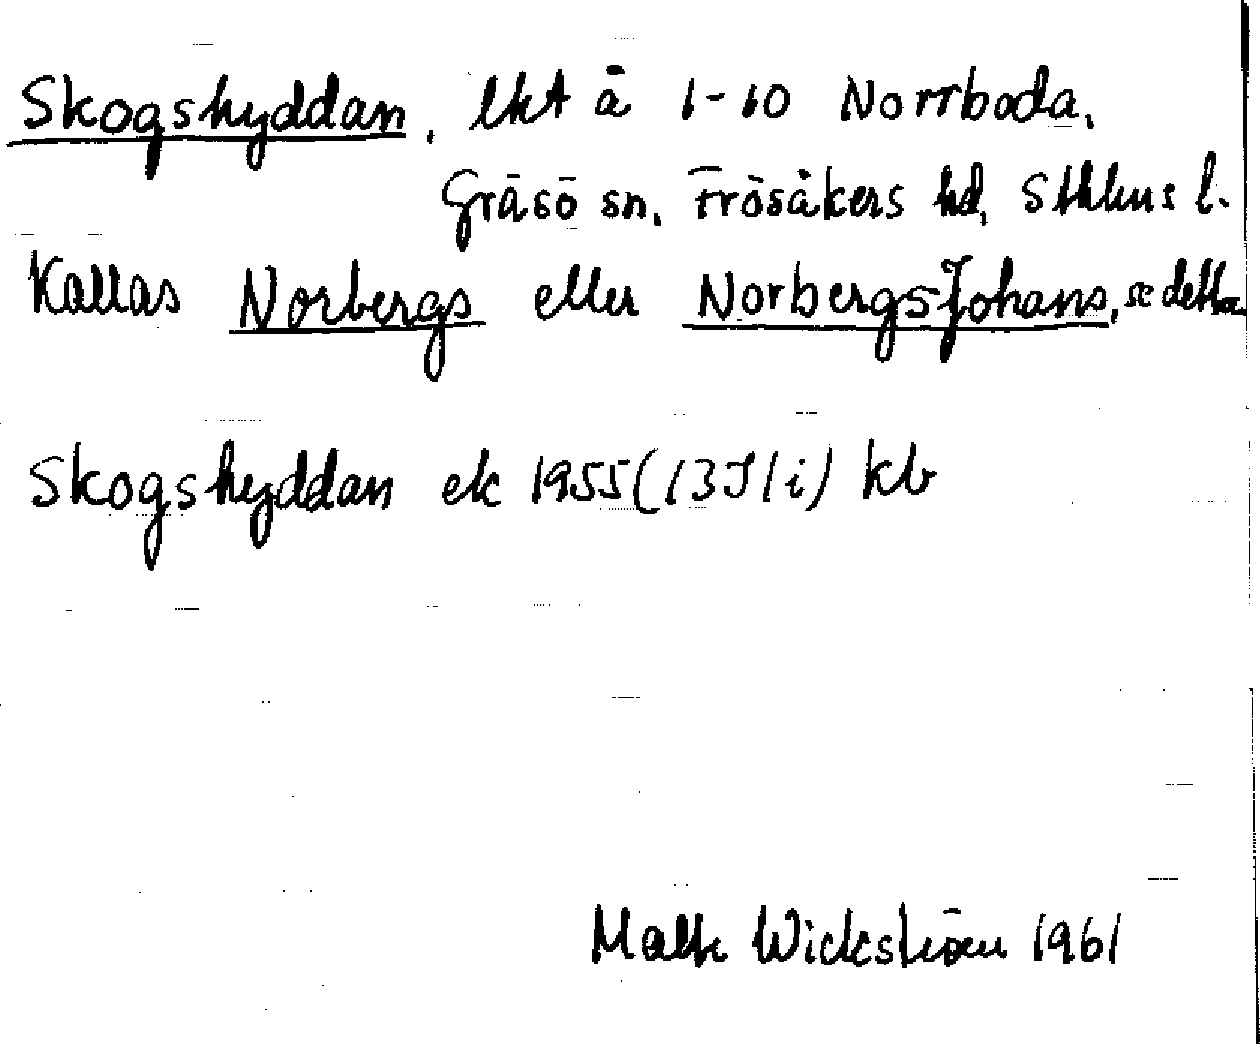 Skogshyddan, lht å 1-10 Norrboda,
Gräsö sn, Frösåkers hd, Sthlms l.
Kallas Norbergs eller Norbergs-Johans, se detta.
Skogshyddan ek 1955 (13J/i) kb
Wickström 1961